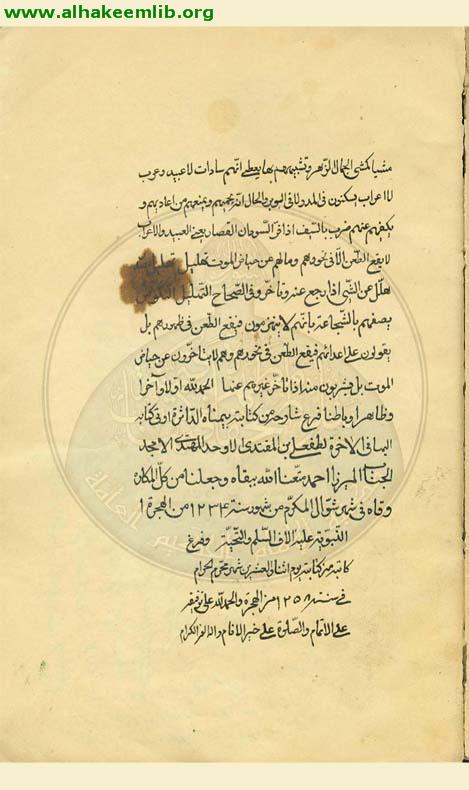 www.alhakeemlib.org
مشيا كمشي الجمال الزهر وتشبيههم بها يعطي انهم سادات لا عبيد وعرب
لا اعراب يسكنون في المدر لا في البوير والحال انه يحميهم ويمنعهم من اعاديهم و
يكفيهم عنهم ضرب بالسيف اذا فر السودان القصار يعني العبيد والاعراب
لا يقع الطعن الا في نحورهم وما لهم عن حياض الموت تهليل
هلل عن الشي اذا رجع عنه وتاخر وفي الصحاح التهليل النكوص
يصفهم بالشجاعة بانهم لا ينهزمون فيقع الطعن في ظهورهم بل
يقولون على اعدائهم فيقع الطعن في نحورهم وهم لا يتاخرون عن حياض
الموت بل يشربون منه اذا تاخر غيرهم عنها الحمد لله اولا وآخرا
وظاهرا وباطنا فرغ شارحه من كتابته بيمناه الداثرة اوتي كتابه
بها في الاخرة لطفعلي بن المقتدى الاوحد المهتدى الامجد
الجناب الميرزا احمد متعنا الله ببقاه وجعلنا من كل المكاره
وقاه في شهر شوال المكرم من شهور سنة ١٢٣٤ من الهجرة ا
النبوية عليه الاف السلم والتحية وفرغ
كاتبه من كتابته يوم اثنان العشرين شهر محرم الحرام
في سنة ١٢٥٨ من الهجرة والحمد لله على توفيقه
على الاتمام والصلوة على خير الانام واله الغر الكرام